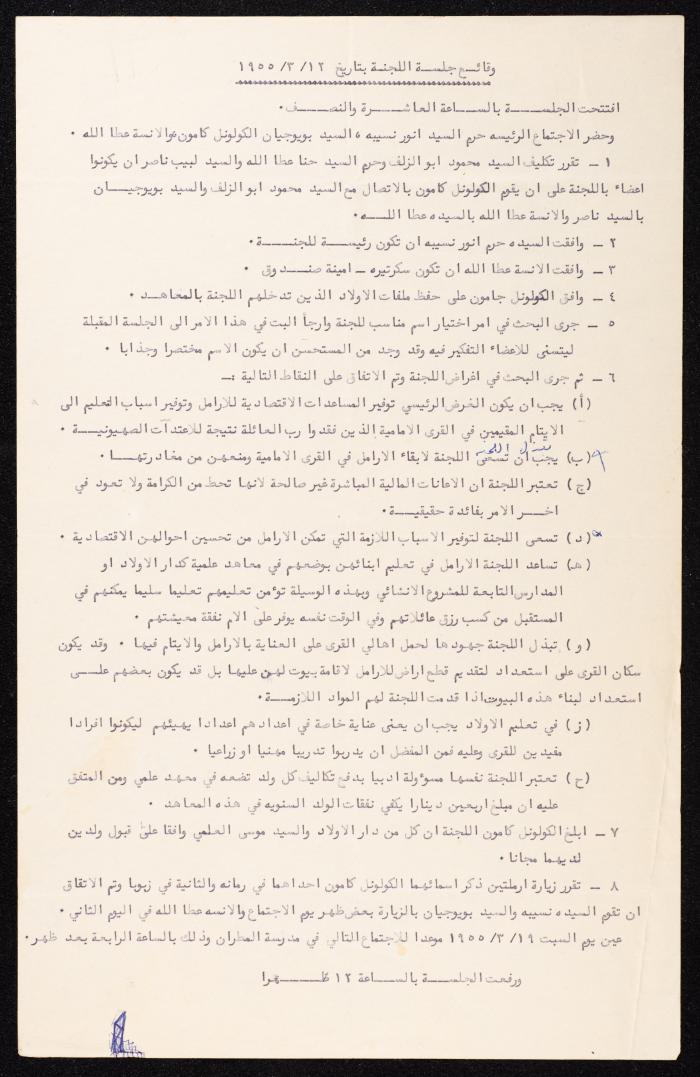 وقائع جلسة اللجنة بتاريخ ١٢/ ٣/ ١٩٥٥
افتتحت الجلسة بالساعة العاشرة والنصف ٠
وحضر الاجتماع الرئيسه حرم السيد انور نسيبه ، السيد بويوجيان الكولونل كامون والانسة عطا الله ٠
١ - تقرر تكليف السيد محمود ابو الزلف وحرم السيد حنا عطا الله والسيد لبيب ناصر ان يكونوا
اعضاء باللجنة على ان يقوم الكولونل كامون بالاتصال مع السيد محمود ابو الزلف والسيد بويوجيان
بالسيد ناصر والانسة عطا الله بالسيده عطا الله ٠
٢ - وافقت السيده حرم انور نسيبه ان تكون رئيسة للجنة ٠
٣ - وافقت الانسة عطا الله ان تكون سكرتيره - امينة صندوق ٠
٤ - وافق الكولونل جامون على حفظ ملفات الاولاد الذين تدخلهم اللجنة بالمعاهد ٠
٥ - جرى البحث في امر اختيار اسم مناسب للجنة وارجأ البت في هذا الامر الى الجلسة المقبلة
ليتسنى للاعضاء التفكير فيه وقد وجد من المستحسن ان يكون الاسم مختصرا وجذابا ٠
٦ - ثم جرى البحث في اغراض اللجنة وتم الاتفاق على النقاط التالية :-
(أ) يجب ان يكون الغرض الرئيسي توفير المساعدات الاقتصادية للارامل وتوفير اسباب التعليم الى
الايتام المقيمين في القرى الامامية الذين فقدوا رب العائلة نتيجة للاعتدآت الصهيونية ٠
(ب) يجب ان تسعى اللجنة لابقاء الارامل في القرى الامامية ومنعهن من مغادرتها ٠
(ج) تعتبر اللجنة ان الاعانات المالية المباشرة غير صالحة لانها تحط من الكرامة ولا تعود في
اخر الامر بفائدة حقيقية ٠
(د) تسعى اللجنة لتوفير الاسباب اللازمة التي تمكن الارامل من تحسين احوالهن الاقتصادية ٠
(هـ) تساعد اللجنة الارامل في تعليم ابنائهن بوضعهم في معاهد علمية كدار الاولاد او
المدارس التابعة للمشروع الانشائي وبهذه الوسيلة تؤمن تعليمهم تعليما سليما يمكنهم في
المستقبل من كسب رزق عائلاتهم وفي الوقت نفسه يوفر على الام نفقة معيشتهم ٠
(و) تبذل اللجنة جهودها لحمل اهالي القرى على العناية بالارامل والايتام فيها ٠ وقد يكون
سكان القرى على استعداد لتقديم قطع اراض للارامل لاقامة بيوت لهن عليها بل قد يكون بعضهم على
استعداد لبناء هذه البيوت اذا قدمت اللجنة لهم المواد اللازمة ٠
(ز) في تعليم الاولاد يجب ان يعنى عناية خاصة في اعدادهم اعدادا يهيئهم ليكونوا افرادا
مفيدين للقرى وعليه فمن المفضل ان يدربوا تدريبا مهنيا او زراعيا ٠
(ح) تعتبر اللجنة نفسها مسؤولة ادبيا بدفع تكاليف كل ولد تضعه في معهد علمي ومن المتفق
عليه ان مبلغ اربعين دينارا يكفي نفقات الولد السنويه في هذه المعاهد ٠
٧ - ابلغ الكولونل كامون اللجنة ان كل من دار الاولاد والسيد موسى العلمي وافقا على قبول ولدين
لديهما مجانا ٠
٨ - تقرر زيارة ارملتين ذكر اسمائهما الكولونل كامون احداهما في رمانه والثانية في زبوبا وتم الاتقاق
ان تقوم السيده نسيبه والسيد بويوجيان بالزيارة بعض ظهر يوم الاجتماع والانسه عطا الله في اليوم الثاني ٠
عين يوم السبت ١٩/ ٣/ ١٩٥٥ موعدا للاجتماع التالي في مدرسة المطران وذلك بالساعة الرابعة بعد ظهر ٠
ورفعت الجلسة بالساعة ١٢ ظهرا